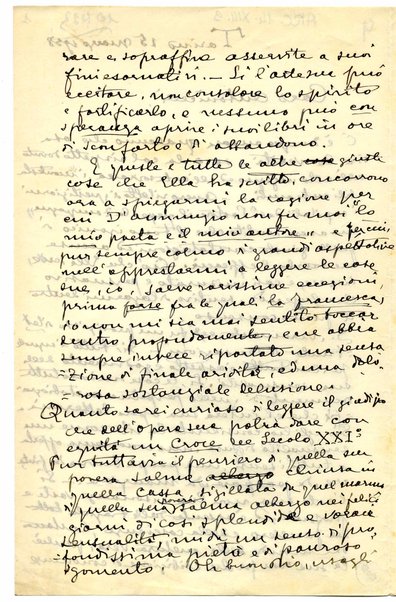 rare e sopraffine asservite a suoi
fini esornativi. — Sì l'arte sua può
eccitare, non consolare lo spirito
e fortificarlo, e nessuno può con
speranza aprire i suoi libri in ore
di sconforto e d'abbandono.
E queste e tutte le altre cose giuste
cose che Ella ha scritto, concorrono
ora a spiegarmi la ragione per
cui D'Annunzio non fu mai "lo
mio poeta e il mio autore" e per cui,
pur sempre colmo di grandi aspettative
nell'apprestarmi a leggere le cose
sue, io, salve rarissime eccezioni,
prima forse fra le quali la Francesca,
io non mi sia mai sentito toccar
dentro profondamente, e ne abbia
sempre invece riportato una sensa
zione di finale aridità, ed una dolo-
rosa sostanziale delusione.
Quanto sarei curioso di leggere il giudizio
che dell'opera sua potrà dare con
equità un Croce del Secolo XXI°
Pur tuttavia il pensiero di quella sua
povera salma chiusa in
quella cassa sigillata da quel marmo
di quella salma albergo nei felici
giorni di così splendida e vorace
sensualità, mi dà un senso di pro-
fondissima pietà e di pauroso
sgomento. Oh buon Dio,